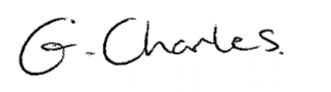 G. Charles.